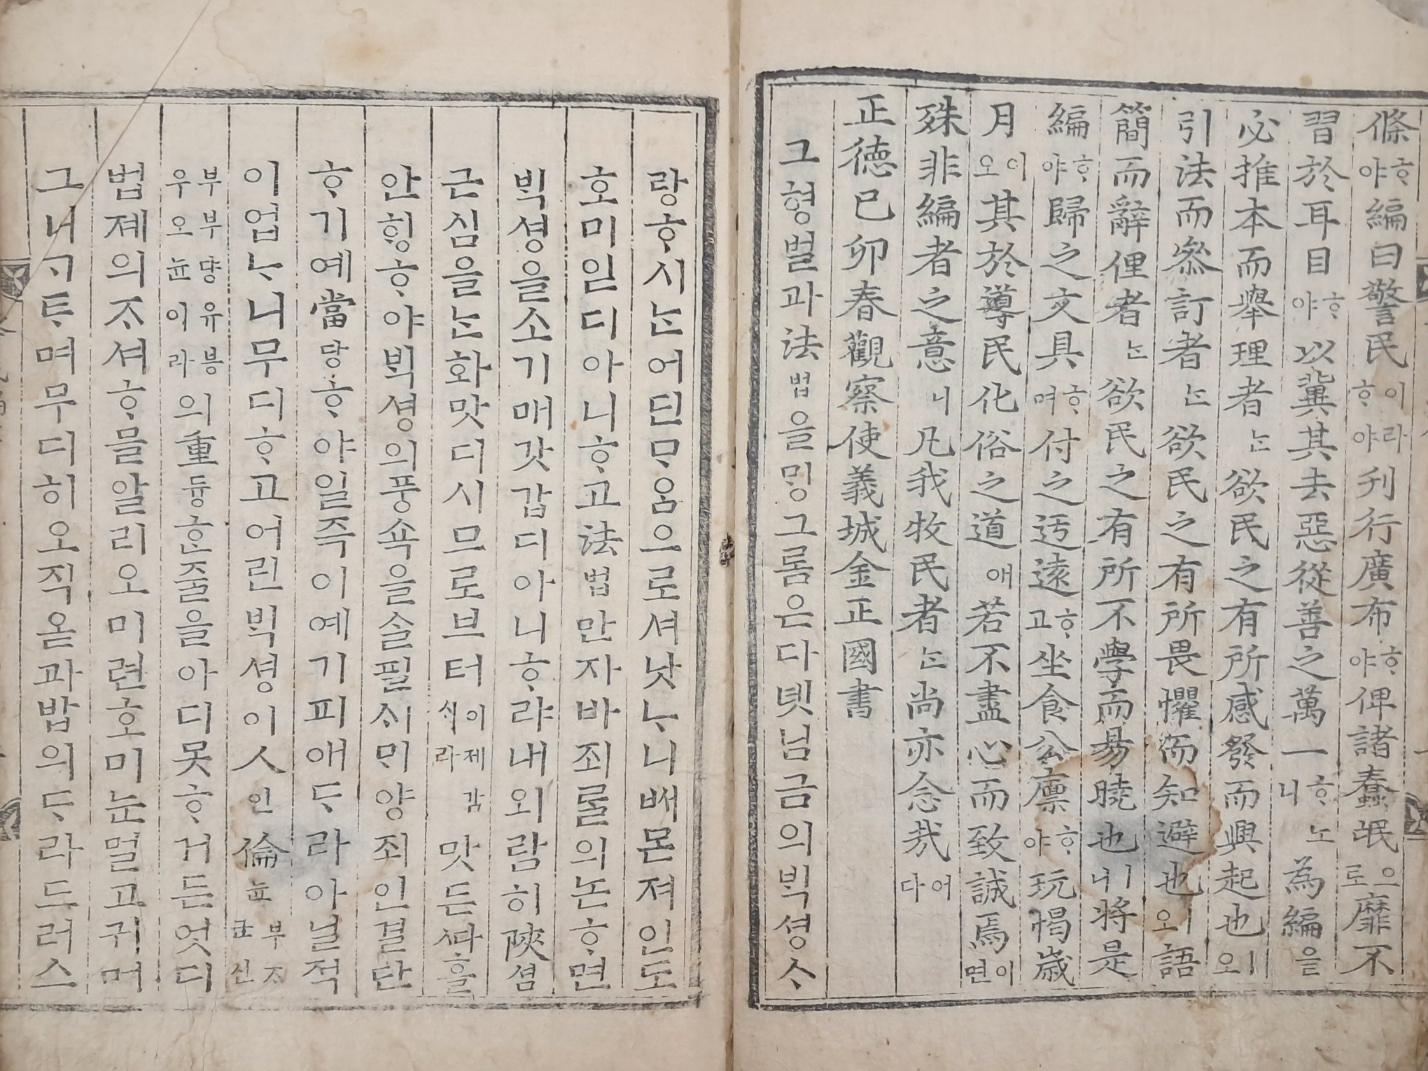 條ᄒᆞ야編曰警民이라ᄒᆞ야刊行廣布ᄒᆞ야俾諸蠢氓으로靡不
習於耳目ᄒᆞ야以冀其去惡從善之萬一ᄒᆞ니노為編을
必推本而擧理者ᄂᆞᆫ欲民之有所感發而興起也ㅣ오
引法而叅訂者ᄂᆞᆫ欲民之有所畏懼而知避也ㅣ오語
簡而辭俚者ᄂᆞᆫ欲民之有所不學而易曉也ㅣ니將是
編ᄒᆞ야歸之文具ᄒᆞ며付之迃遠ᄒᆞ고坐食公廪ᄒᆞ야玩愒歲
月이오其於導民化俗之道애若不盡心而致誠焉이면
殊非編者之意니凡我牧民者ᄂᆞᆫ尚亦念哉어다
正德己卯春觀察使義城金正國書
그형벌과法법을ᄆᆡᆼ그롬은다녯님금의ᄇᆡᆨ셩ᄉᆞ
랑ᄒᆞ시ᄂᆞᆫ어딘ᄆᆞᄋᆞᆷ으로셔낫ᄂᆞ니배몬져인도
호미읻디아니ᄒᆞ고法법만자바죄롤의논ᄒᆞ면
ᄇᆡᆨ셩을소기매갓갑디아니ᄒᆞ랴내외람히陜셤
근심을ᄂᆞᆫ화맛디시므로브터이제감ᄉᆡ라맛든ᄯᅡᄒᆞᆯ
안ᄒᆡᆼᄒᆞ야ᄇᆡᆨ셩의풍쇽을ᄉᆞᆯ필시ᄆᆡ양죄인결단
ᄒᆞ기예當당ᄒᆞ야일즉이예기피애ᄃᆞ라아닐적
이업ᄂᆞ니무디ᄒᆞ고어린ᄇᆡᆨ셩이人인倫뉸부ᄌᆞ군신
부부댱유붕우오뉸이라의重듕ᄒᆞᆫ줄을아디못ᄒᆞ거든엇디
법졔의ᄌᆞ셔ᄒᆞᄆᆞᆯ알리오미련호미눈멀고귀머
그니ᄀᆞᄐᆞ며무디히오직옫과밥의ᄃᆞ라드러스